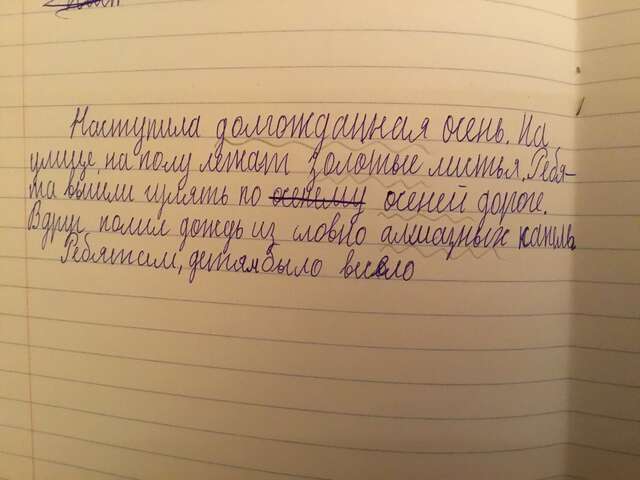 Наступила долгожданная осень. На
улице, на полу лежат золотые листья. Ребя-
та вышли гулять по осеней дороге.
Вдруг полил дождь из словно алмазных капель
Ребятам, детям было весело